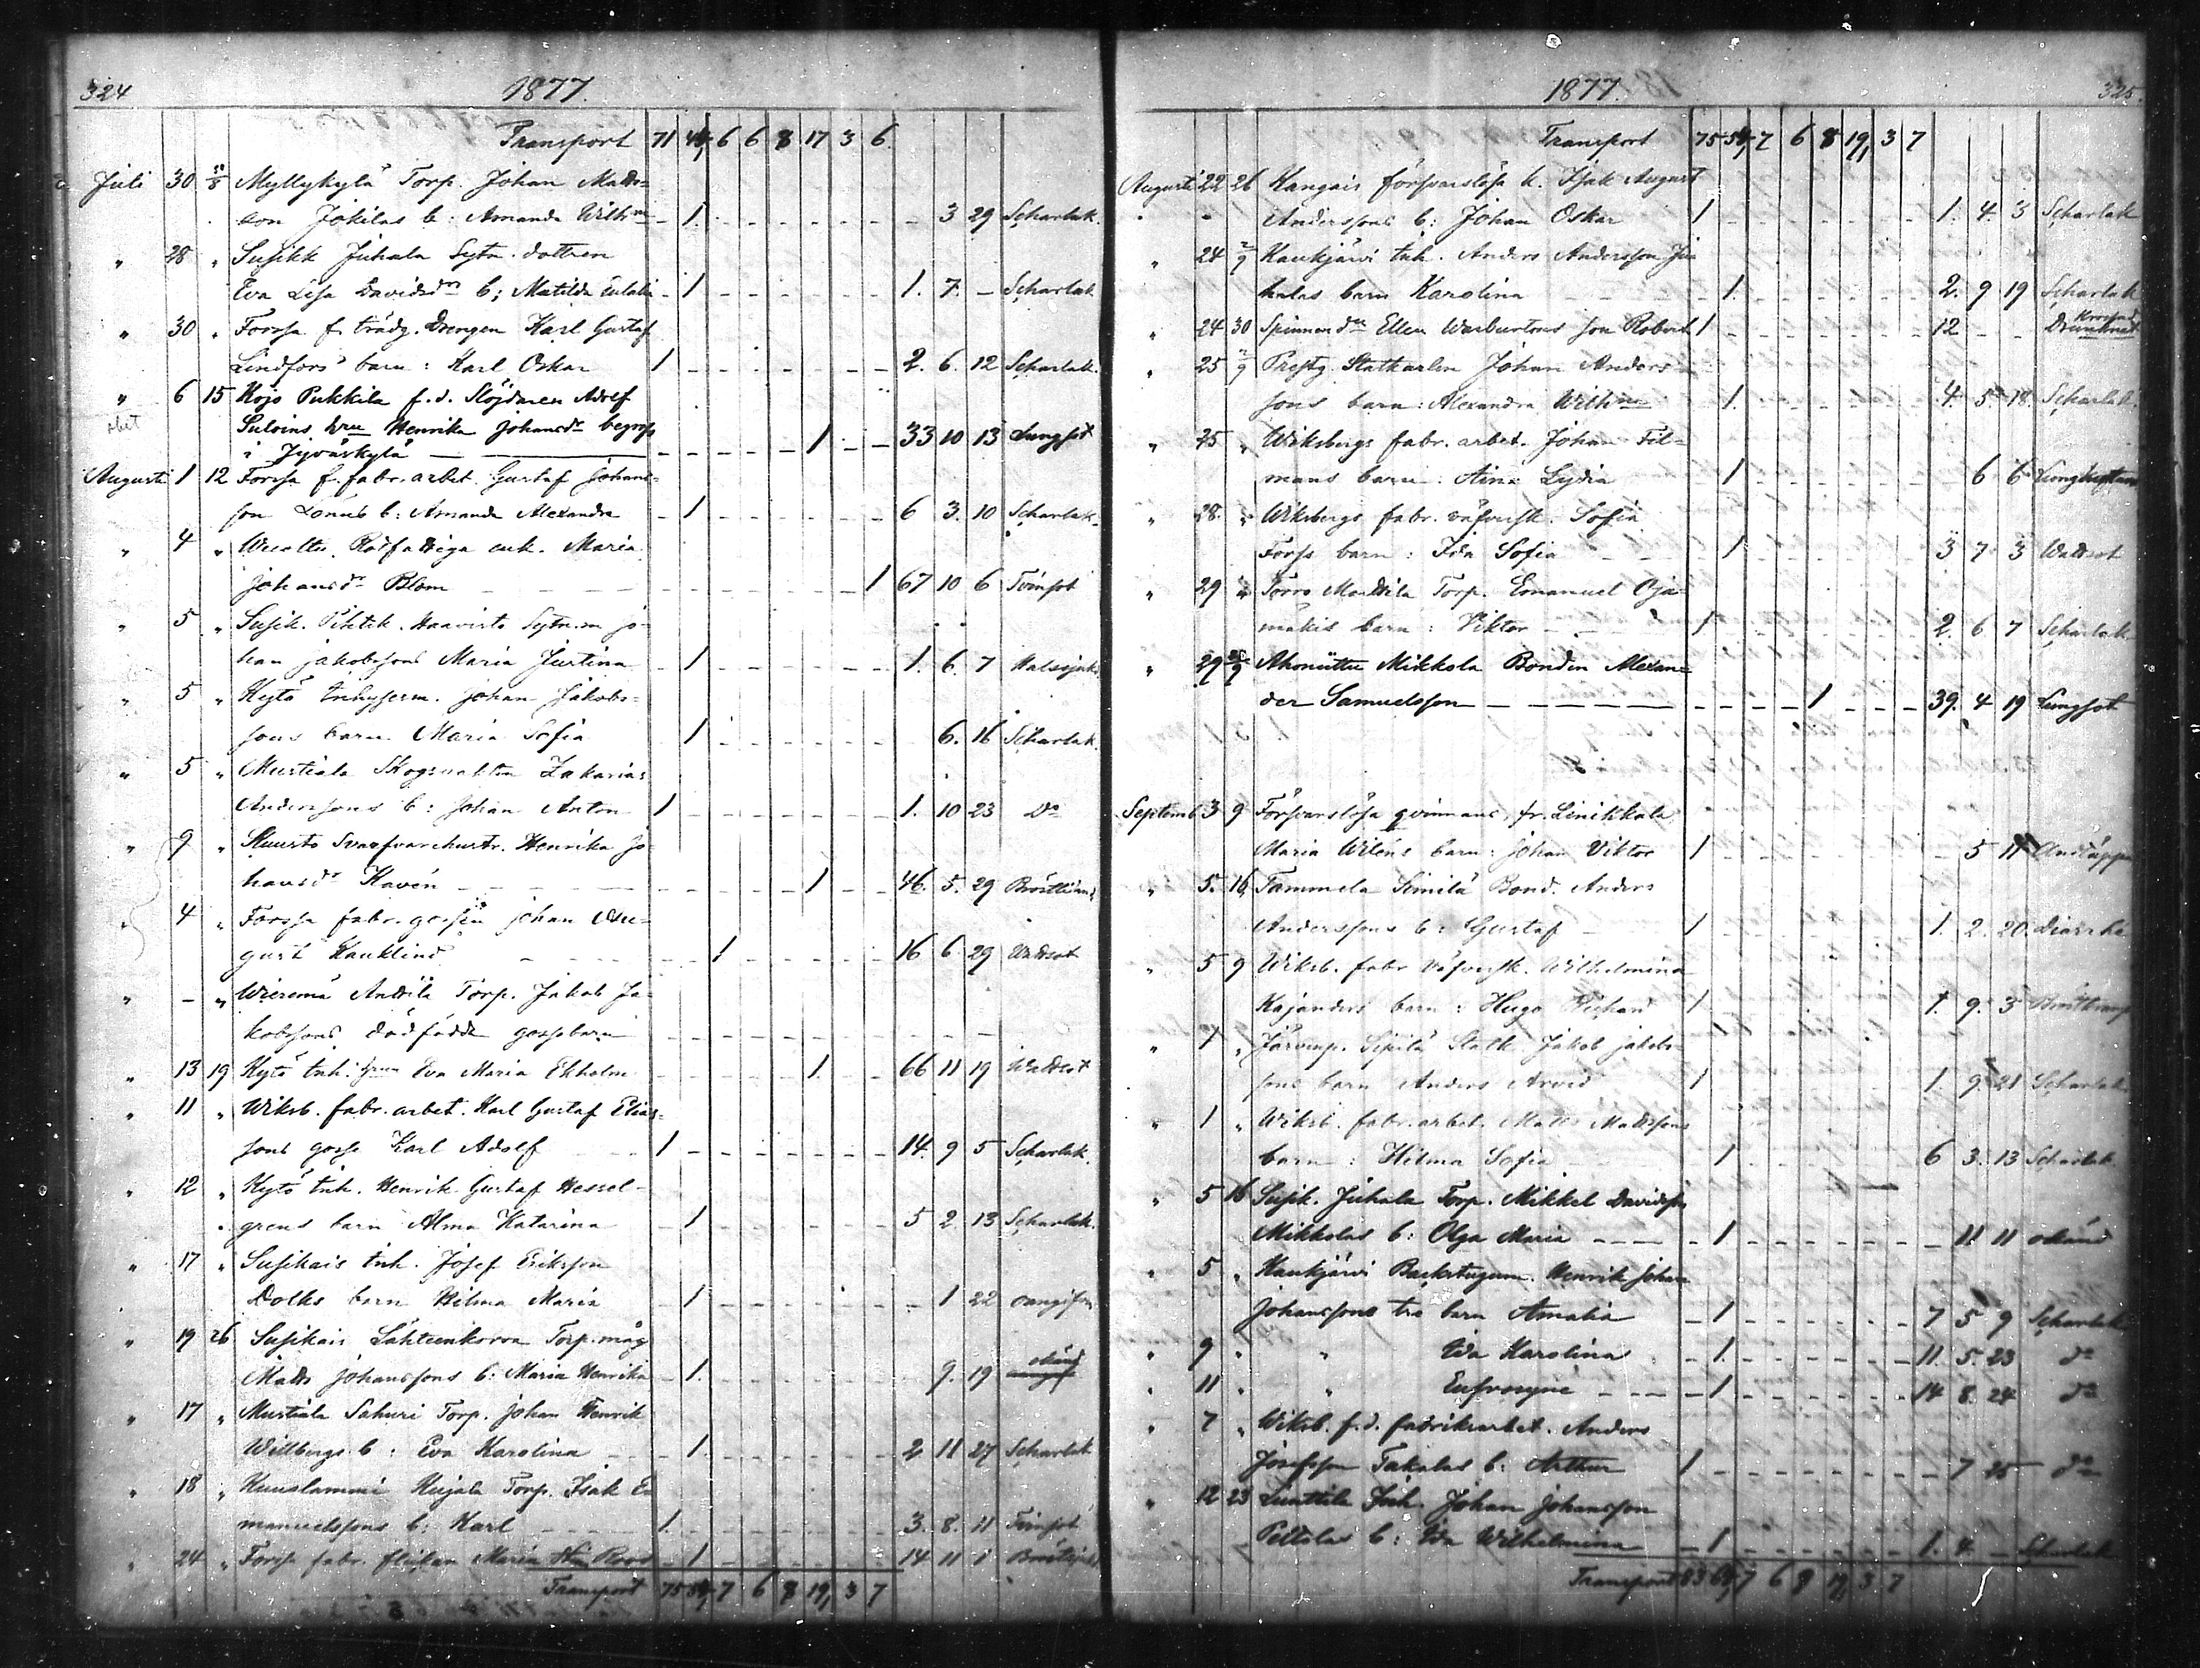 324
1877.
Transport 71 44, 6 6 8 17 3 6.
Juli 30 Myllykylä Torp. Johan Matts-
son Jokilas b: Amanda Wilhma 1. 3 29 Scharlak.
" 28 " Susikk Juhala Sytn. dottren
Eva Lisa Davidsdrs b; Matilda Eulalia 1 1. 7. - Scharlak
" 30 " Forssa f. trädg. Drengen Karl Gustaf
Lindfors barn: Karl Oskar 1 2. 6. 12 Scharlak.
" 6 15 Kojo Pukkila f.d. Slöjdaren Adolf
hru Henrika Johansdr begrofs 1 33 10 13 Lungsot
i Jyväskylä
Augusti 1 12 Forssa f. fabr. arbet. Gustaf Johans-
son b: Amanda Alexandra 1 6 3. 10 Scharlak.
" 4 " Rotfattiga enk. Maria
Johansdr Blom 1 67 10 6 Tvinsot
" 5 " Susik. Haavisto Sytn.m Jo-
han Jakobssons Maria Justina 1 1. 6. 7 Halssjuk
" 5 " Kytö Inhysesm. Johan Jakobs-
sons barn Maria Sofia 1 6. 16 Scharlak.
" 5 " Mustiala Skogsvakten Zakarias
Anderssons b: Johan Anton 1 1. 10 23 Do
" 9 " Kuusto Svarfvarehustr. Henrika Jo-
hansdr Kavén 1 46. 5. 29
" 4 " Forssa fabr. gossen Johan Au-
gust Kauklind 1 16 6 29 Wattsot
" - " Wieremä Anttila Torp. Jakob Ja-
kobssons dödfödda gossebarn
" 13 19 Kytö Inh. hru Eva Maria Ekholm 1. 66 11 19 Wattsot
" 11 " Wiksb. fabr. arbet. Karl Gustaf Elias-
sons gosse Karl Adolf 1 14. 9 5 Scharlak.
" 12 " Kytö Inh. Henrik Gustaf Hessel-
grens barn Alma Katarina 1 5 2. 13 Scharlak.
" 17 " Susikais inh. Josef Eriksson
Dolks barn Hilma Maria 1 1 22 oangifven
" 19 26 Susikais Lähteenkorva Torp. måg
Matts Johanssons b: Maria Henrika 1. 9. 19 okänd
" 17 " Mustiala Sahuri Torp. Johan Henrik
Willbergs b: Eva Karolina 1. 2 11 27 Scharlak
" 18 " Kuuslammi Kujala Torp. Isak E-
manuelssons b: Karl 1. 3. 8. 11 Tvinsot
" 24 " Forssa fabr. flickan Maria Roos 1 14 11 1
Transport 75 54, 7 6 8 19, 3 7
1877.
325.
Transport 75 54, 7 6 8 19, 3 7
Augusti 22 26 Kangais försvarslösa k. Isak August
Anderssons b: Johan Oskar 1 1. 4. 3 Scharlak
" 24 2/9 Kaukjärvi Inh. Anders Andersson Ju-
halas barn Karolina 1. 2. 9 19 Scharlak
" 24 30 Ellen Warburtons son Robert 1 12 - - Drunknat
" 25 2/9 Prestg. Statkarlen Johan Anders-
sons barn: Alexandra Wilhma 1. 4. 5 18 Scharlak.
" 25 " Wiksbergs fabr. arbet. Johan Fil-
mans barn: Aina Lydia 1 6 6
" 28. " Wiksbergs fabr. väfversk. Sofia
Forss barn: Ida Sofia 1 3 7 3 Wattsot
" 29 " Torro Mattila Torp. Emanuel Oja-
mäkis barn: Viktor 1 2. 6 7 Scharlak
" 29 Ahonüttu Mikkola Bonden Alexan-
der Samuelsson 1 39. 4 19 Lungsot
Septemb 3 9 Försvarslösa qvinnans fr. Linikkala
Maria Wiléns barn: Johan Viktor 1 5 11 Andtäppa
" 5. 16 Tammela Simila Bond. Anders
Anderssons b: Gustaf 1 1. 2. 20. Diarrhé
" 5 9 Wiksb. fabr väfversk. Wilhelmina
Kajanders barn: Hugo Richard 1 1. 9. 3
" 7 " Sipilä Statk Jakob Jakobs-
sons barn Anders Arvid 1 1. 9. 21 Scharlak.
" 1 " Wiksb. fabr. arbet. Matts Mattssons
barn: Hilma Sofia 1 6 3. 13 Scharlak
" 5 16 Susik. Juhala Torp. Mikkel Davidssn
Mikkolas b: Olga Maria 1 11 11 okänd
" 5 " Kaukjärvi Backstugum. Henrik Johan
Johanssons tre barn Amalia 1 7 5 9 Scharlak
" 9 " " Ida Karolina 1. 11. 5. 23 do
" 11 " " Eufrosyne 1 14 8. 24 do
" 7 " Wiksb. f.d. fabriksarbet. Anders
Josefsson Takalas b: Arthur 1 7 25 do
" 12 23 Inh. Johan Johansson
Peltolas b: Ida Wilhelmina 1 1. 4. - Scharlak
Transport 83 64, 7 6 9 19, 3 7